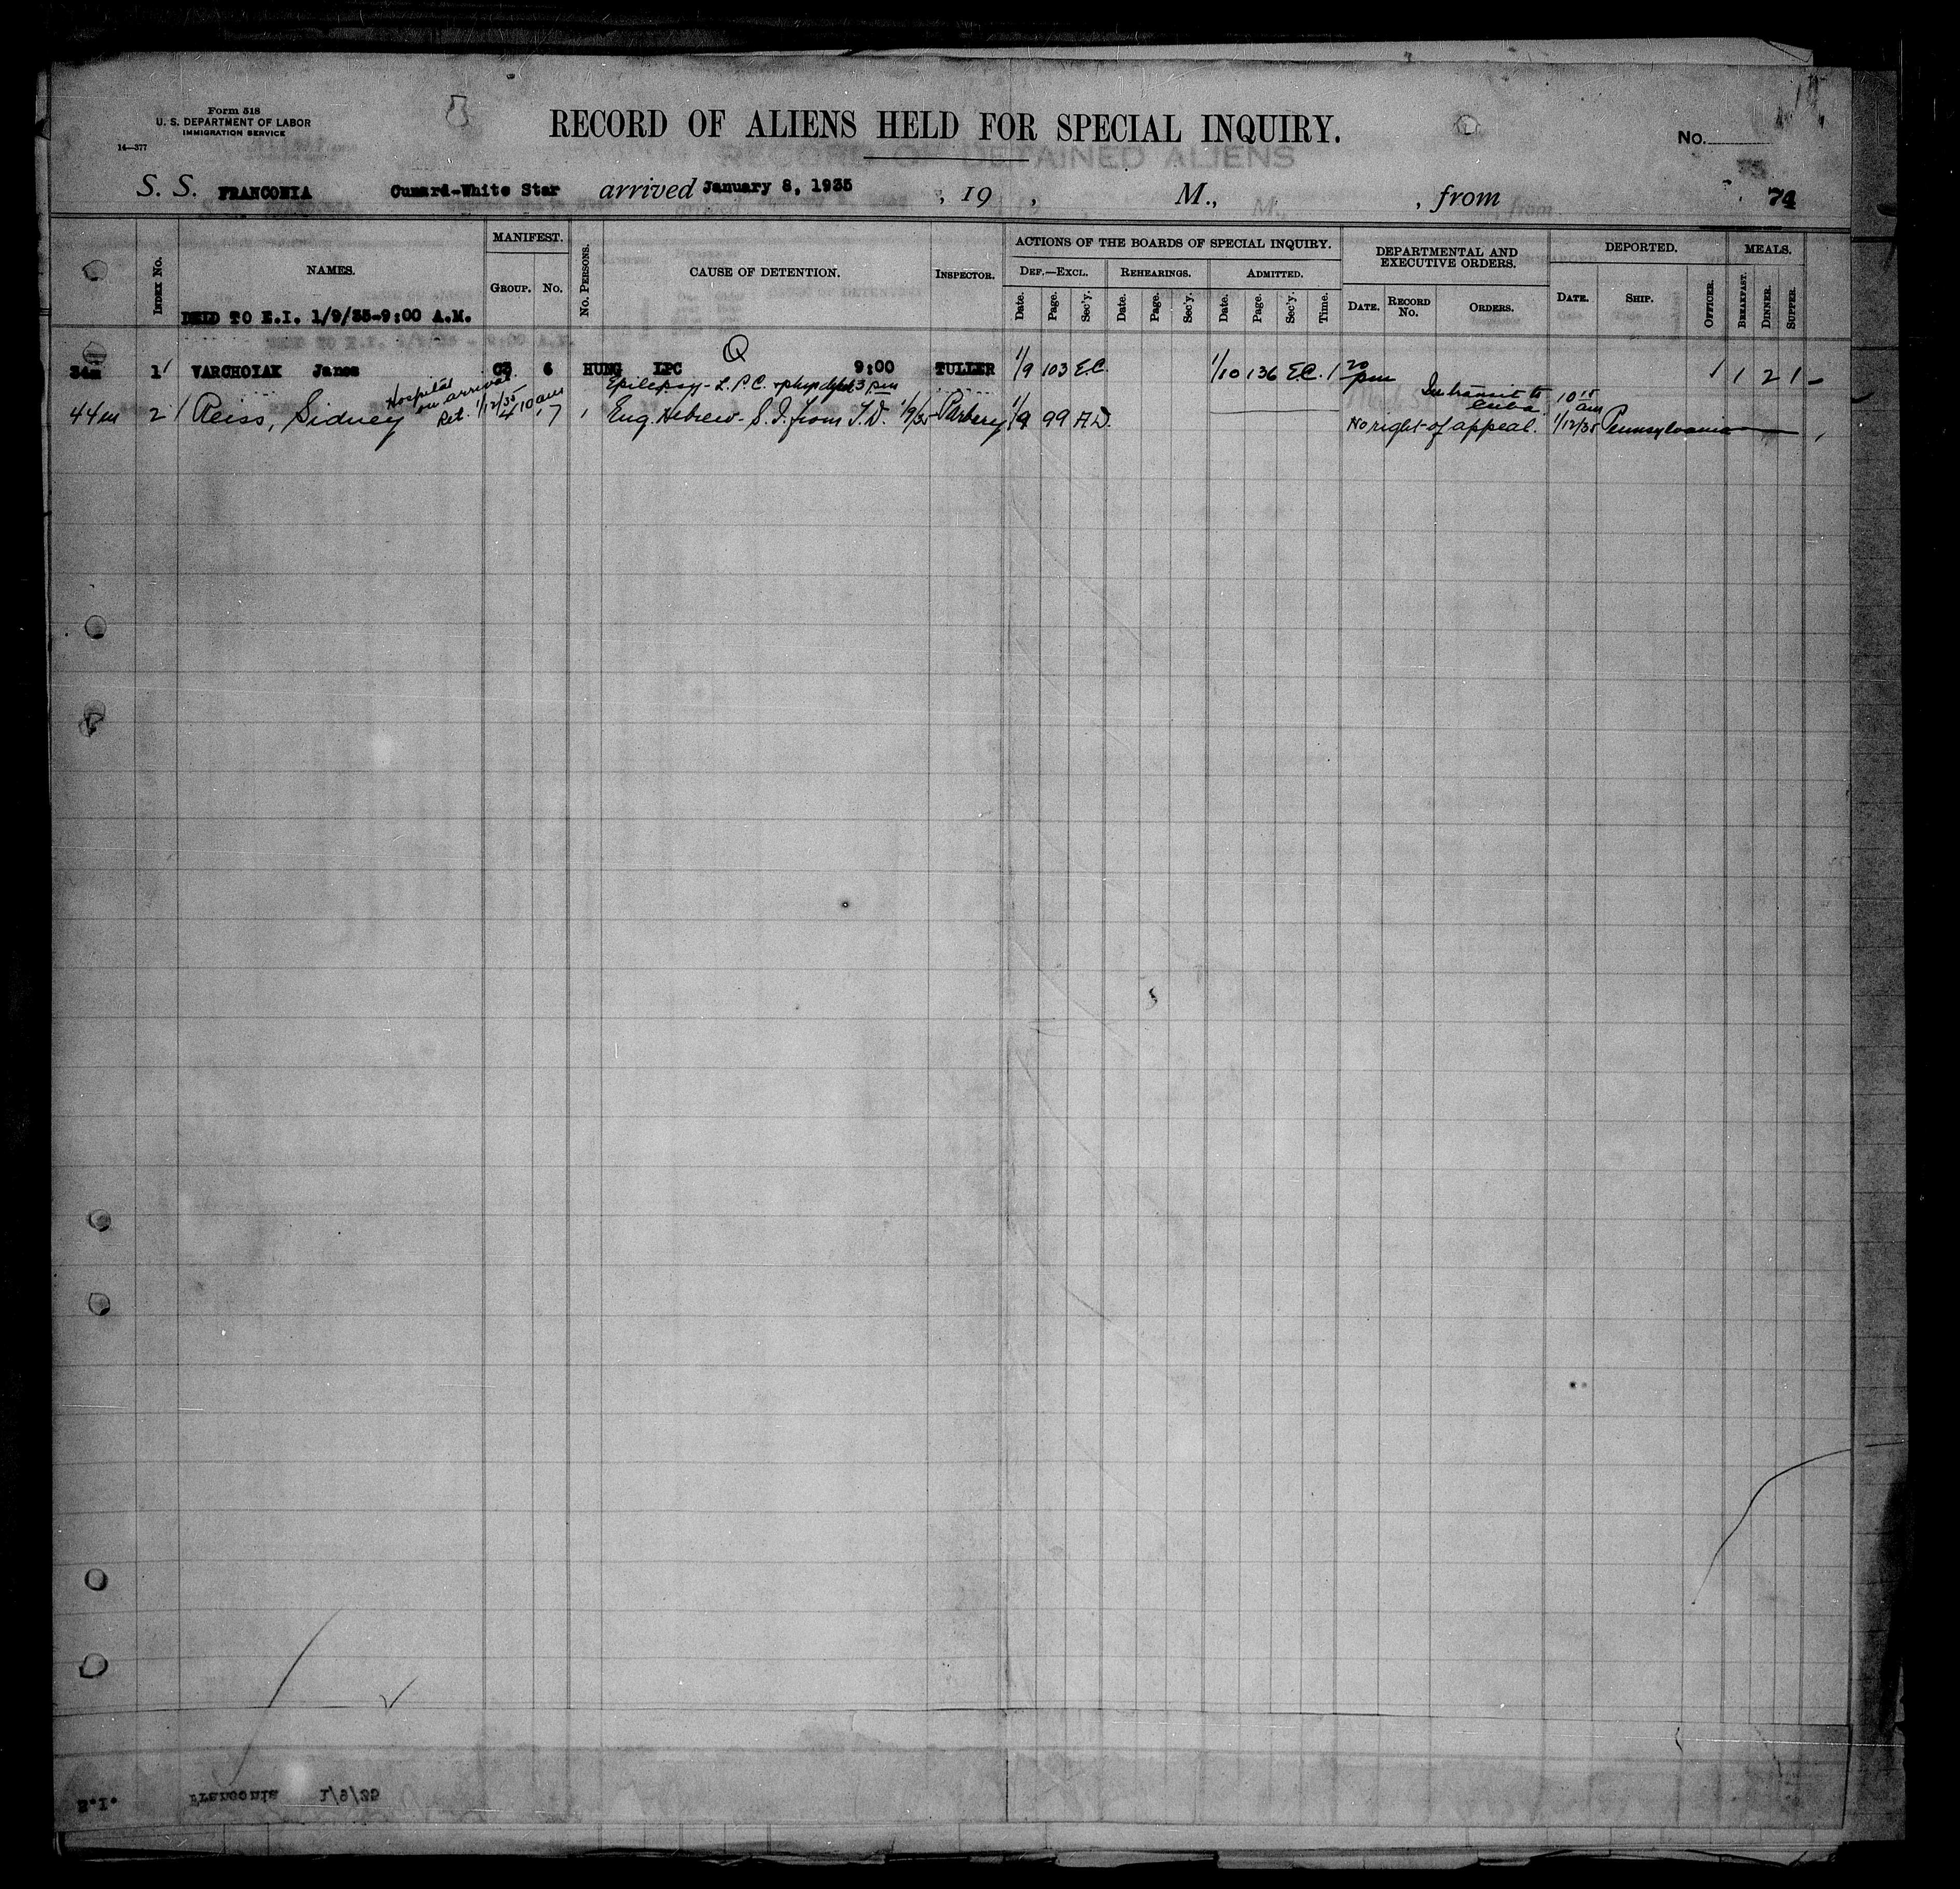 Form 518
U. S. DEPARTMENT OF LABOR
IMMIGRATION SERVICE
14—377
RECORD OF ALIENS HELD FOR SPECIAL INQUIRY.
No.
S. S. FRANCONIA Cunard-White Star arrived January 8, 1935, 19 , M., , from 74
INDEX No. NAMES. MANIFEST. GROUP. No. No. PERSONS. CAUSE OF DETENTION. INSPECTOR.
ACTIONS OF THE BOARDS OF SPECIAL INQUIRY.
DEF.—EXCL. REHEARINGS. ADMITTED.
Date. Page. Sec'y. Date. Page. Sec'y. Date. Page. Sec'y. Time.
DEPARTMENTAL AND EXECUTIVE ORDERS.
DATE. RECORD No. ORDERS.
DEPORTED.
DATE. SHIP. OFFICER.
MEALS.
BREAKFAST. DINNER. SUPPER.
HELD TO E.I. 1/9/35-9:00 A.M.
Q
34m 1 VARCHOIAK Janos 6 HUNG LPC 9:00 TULLER 1/9 103 E.C. 1/10 136 E.C. 1 20 pm 1 1 2 1 -
Hospital on arrival
Ret. 1/12/35 10 am
Epilepsy - L.P.C. 3 pm
In transit to Cuba.
10 15 am
44m 2 1 Reiss, Sidney 4 17 1 Eng. Hebrew - S.I. from T.D. 1/9/35 Parbery 1/9 99 A.D. No right of appeal. 1/12/35 Pennsylvania
S.I. Franconia 1/9/35